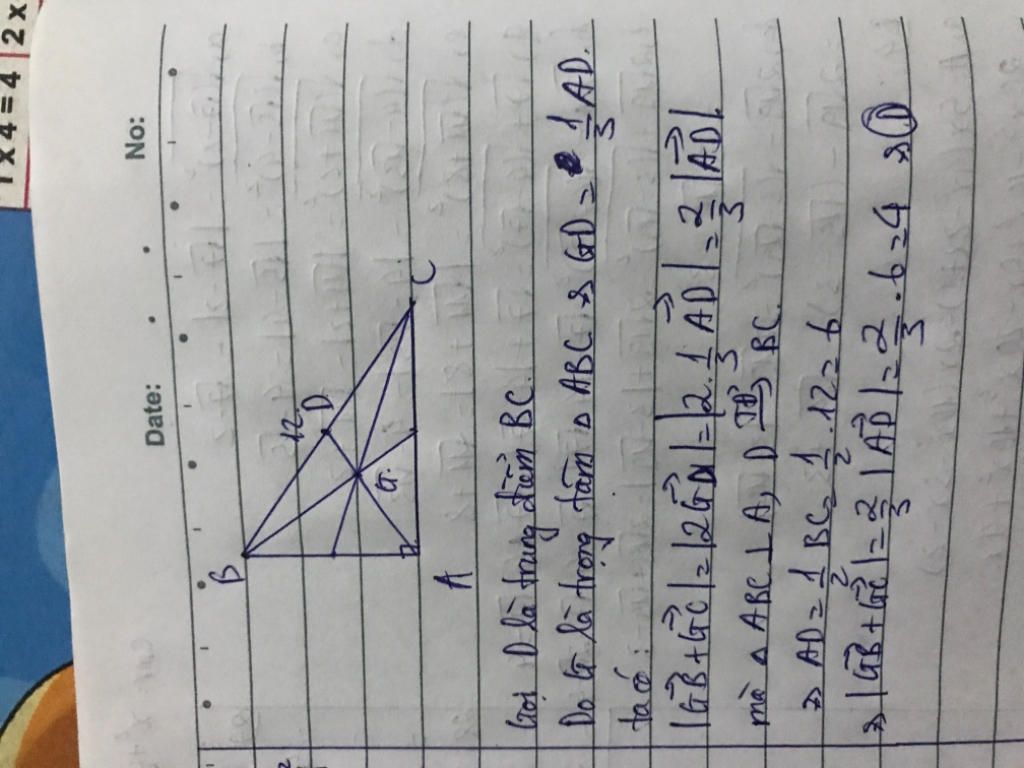 1 x 4 = 4
2 x
Date:
No:
B
12
D
G
A
C
Gọi D là trung điểm BC.
Do G là trọng tâm △ ABC. => GD = 1/3 AD.
ta có:
|GB→ + GC→| = |2GD→| = |2. 1/3 AD→| = 2/3 |AD→|
mà △ ABC ⊥ A, D TĐ BC.
=> AD = 1/2 BC = 1/2 .12 = 6
=> |GB→ + GC→| = 2/3 |AD→| = 2/3 . 6 = 4 => D